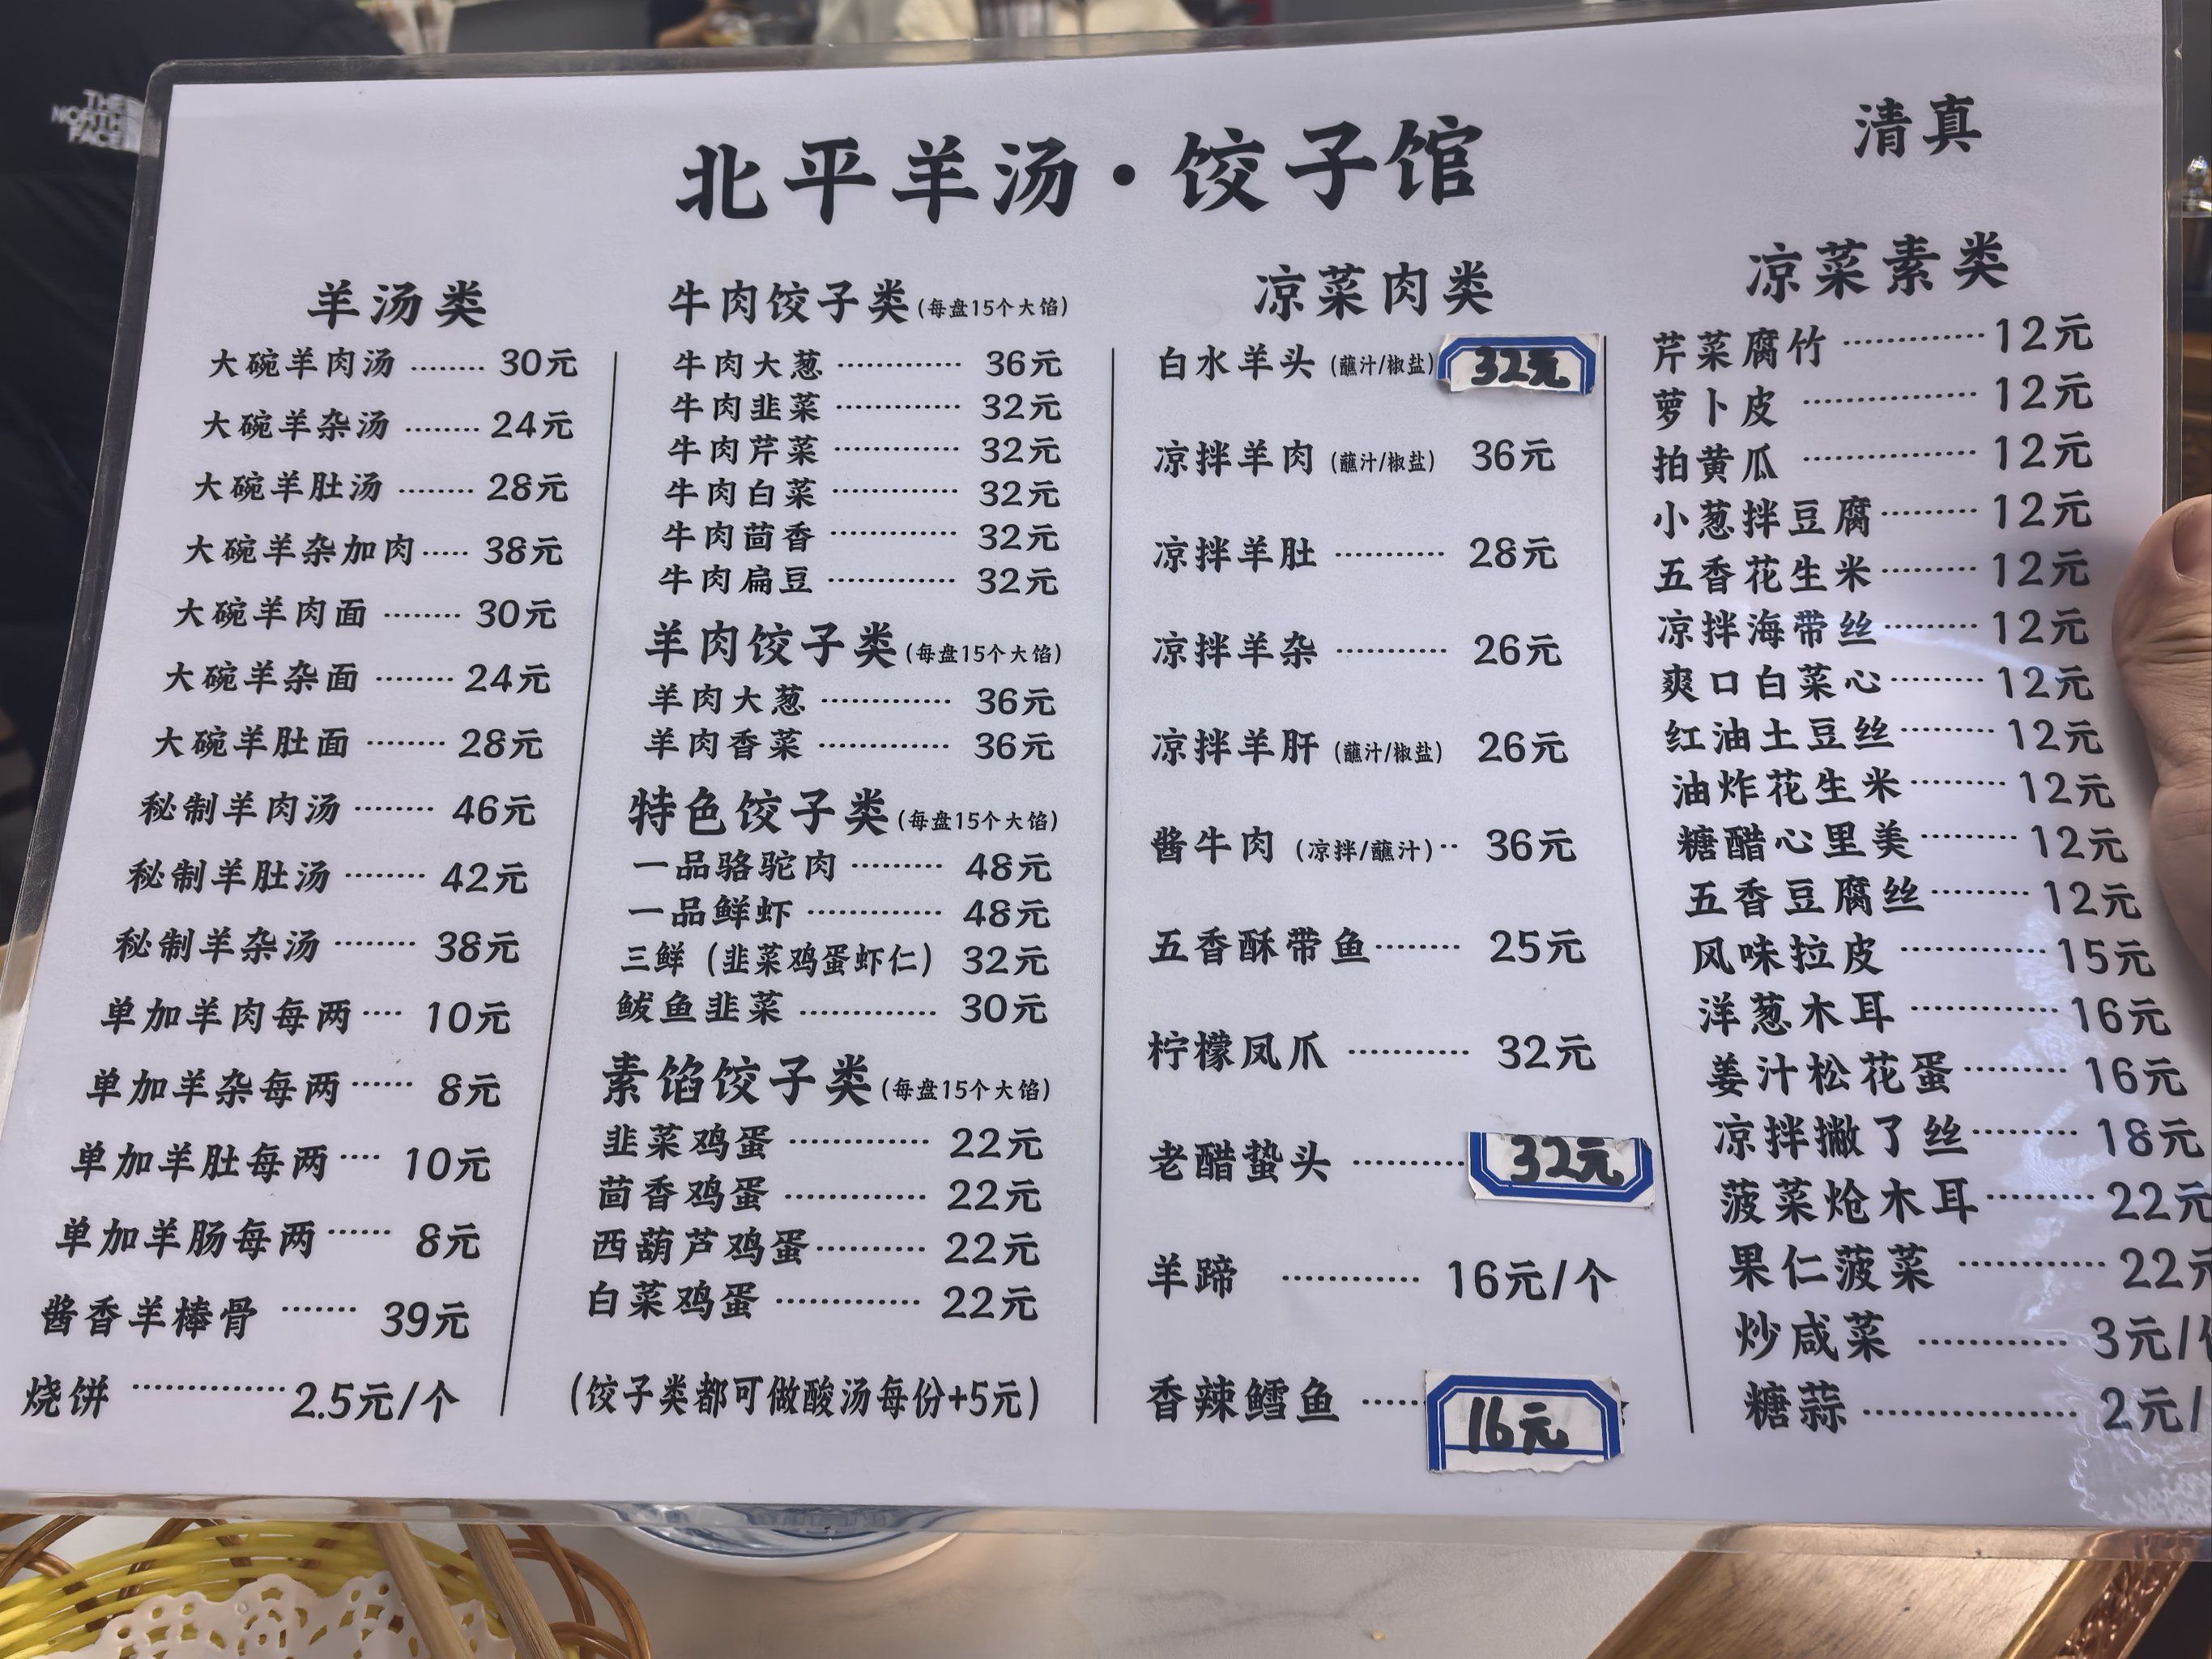 THE
NORTH
FACE
清真
北平羊汤·饺子馆
羊汤类
大碗羊肉汤 ········ 30元
大碗羊杂汤 ········ 24元
大碗羊肚汤 ········ 28元
大碗羊杂加肉 ····· 38元
大碗羊肉面 ········ 30元
大碗羊杂面 ········ 24元
大碗羊肚面 ········ 28元
秘制羊肉汤 ········ 46元
秘制羊肚汤 ········ 42元
秘制羊杂汤 ········ 38元
单加羊肉每两 ···· 10元
单加羊杂每两 ······ 8元
单加羊肚每两 ···· 10元
单加羊肠每两 ······ 8元
酱香羊棒骨 ······· 39元
烧饼 ·············· 2.5元/个
牛肉饺子类(每盘15个大馅)
牛肉大葱 ············· 36元
牛肉韭菜 ············· 32元
牛肉芹菜 ············· 32元
牛肉白菜 ············· 32元
牛肉茴香 ············· 32元
牛肉扁豆 ············· 32元
羊肉饺子类(每盘15个大馅)
羊肉大葱 ············· 36元
羊肉香菜 ············· 36元
特色饺子类(每盘15个大馅)
一品骆驼肉 ········· 48元
一品鲜虾 ············· 48元
三鲜（韭菜鸡蛋虾仁） 32元
鲅鱼韭菜 ············· 30元
素馅饺子类(每盘15个大馅)
韭菜鸡蛋 ············· 22元
茴香鸡蛋 ············· 22元
西葫芦鸡蛋 ·········· 22元
白菜鸡蛋 ············· 22元
(饺子类都可做酸汤每份+5元)
凉菜肉类
白水羊头 (蘸汁/椒盐) 32元
凉拌羊肉 (蘸汁/椒盐) 36元
凉拌羊肚 ··········· 28元
凉拌羊杂 ··········· 26元
凉拌羊肝 (蘸汁/椒盐) 26元
酱牛肉 (凉拌/蘸汁)·· 36元
五香酥带鱼 ········ 25元
柠檬凤爪 ··········· 32元
老醋蛰头 ·········· 32元
羊蹄 ············ 16元/个
香辣鳕鱼 ····· 16元
凉菜素类
芹菜腐竹 ············· 12元
萝卜皮 ················ 12元
拍黄瓜 ················ 12元
小葱拌豆腐 ········· 12元
五香花生米 ········· 12元
凉拌海带丝 ········· 12元
爽口白菜心 ········· 12元
红油土豆丝 ········· 12元
油炸花生米 ········· 12元
糖醋心里美 ········· 12元
五香豆腐丝 ········· 12元
风味拉皮 ············ 15元
洋葱木耳 ············ 16元
姜汁松花蛋 ········· 16元
凉拌撇了丝 ········· 18元
菠菜炝木耳 ········· 22元
果仁菠菜 ············ 22元
炒咸菜 ············ 3元/
糖蒜 ················ 2元/